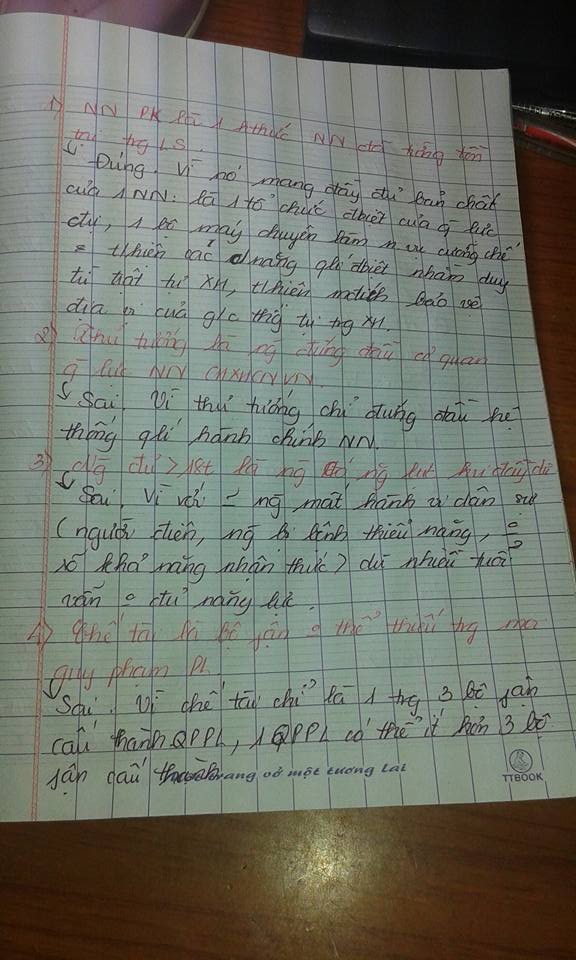 1) NN PK là 1 hthức NN đã từng tồn
tại trg LS.
↳ Đúng. Vì nó mang đầy đủ bản chất
của 1 NN: là 1 tổ chức đbiệt của q̃ lực
ctrị, 1 bộ máy chuyên làm n vụ cưỡng chế
thiện các năng qlí đbiệt nhằm duy
trì trật tự XH, thiện mđích bảo vệ
địa vị của g/c thị trg XH.
2) Thủ tướng là ng đứng đầu cơ quan
q̃ lực NN CHXHCNVN.
↳ Sai. Vì thủ tướng chỉ đứng đầu hệ
thống qlí hành chính NN.
3) Ng đủ > 18t là ng có ng lực đầy đủ
↳ Sai. Vì với ng mất hành vi dân sự
(người điên, ng bị bệnh thiểu năng,
số khả năng nhận thức) dù nhiều tuổi
vẫn đủ năng lực.
4) Chế tài là bộ fận thể thiếu trg mọi
quy phạm PL
↳ Sai. Vì chế tài chỉ là 1 trg 3 bộ fận
cấu thành QPPL, 1 QPPL có thể ít hơn 3 bộ
fận cấu thành
trang vở một tương lai
TTBOOK